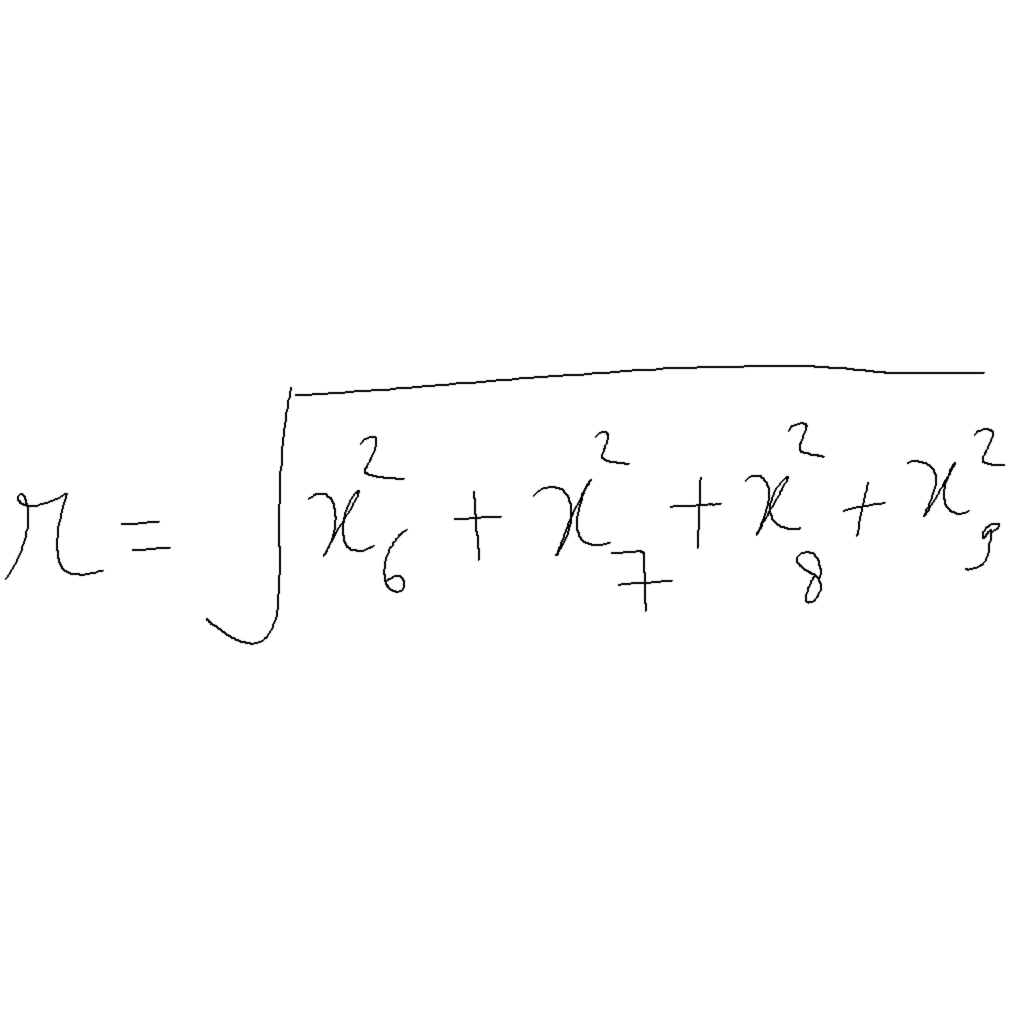 r = \sqrt{x_6^2 + x_7^2 + x_8^2 + x_9^2}